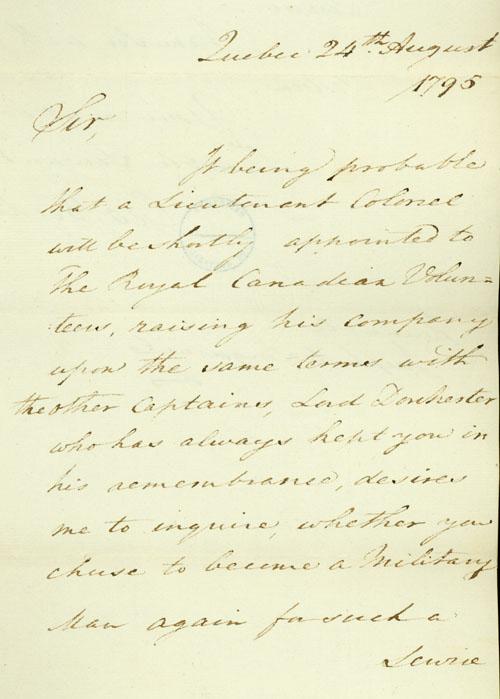 Quebec 24th August
1795
Sir,
It being probable
that a Lieutenant Colonel
will be shortly appointed to
The Royal Canadian Volun=
teers, raising his Company
upon the same terms with
the other Captains, Lord Dorchester
who has always kept you in
his remembrance, desires
me to inquire, whether you
chuse to become a Military
Man again for such a